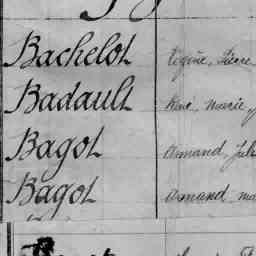 Bachelot Eugène, Pierre
Badault René, Marie
Bagot Armand, Jul
Bagot Armand, Ma